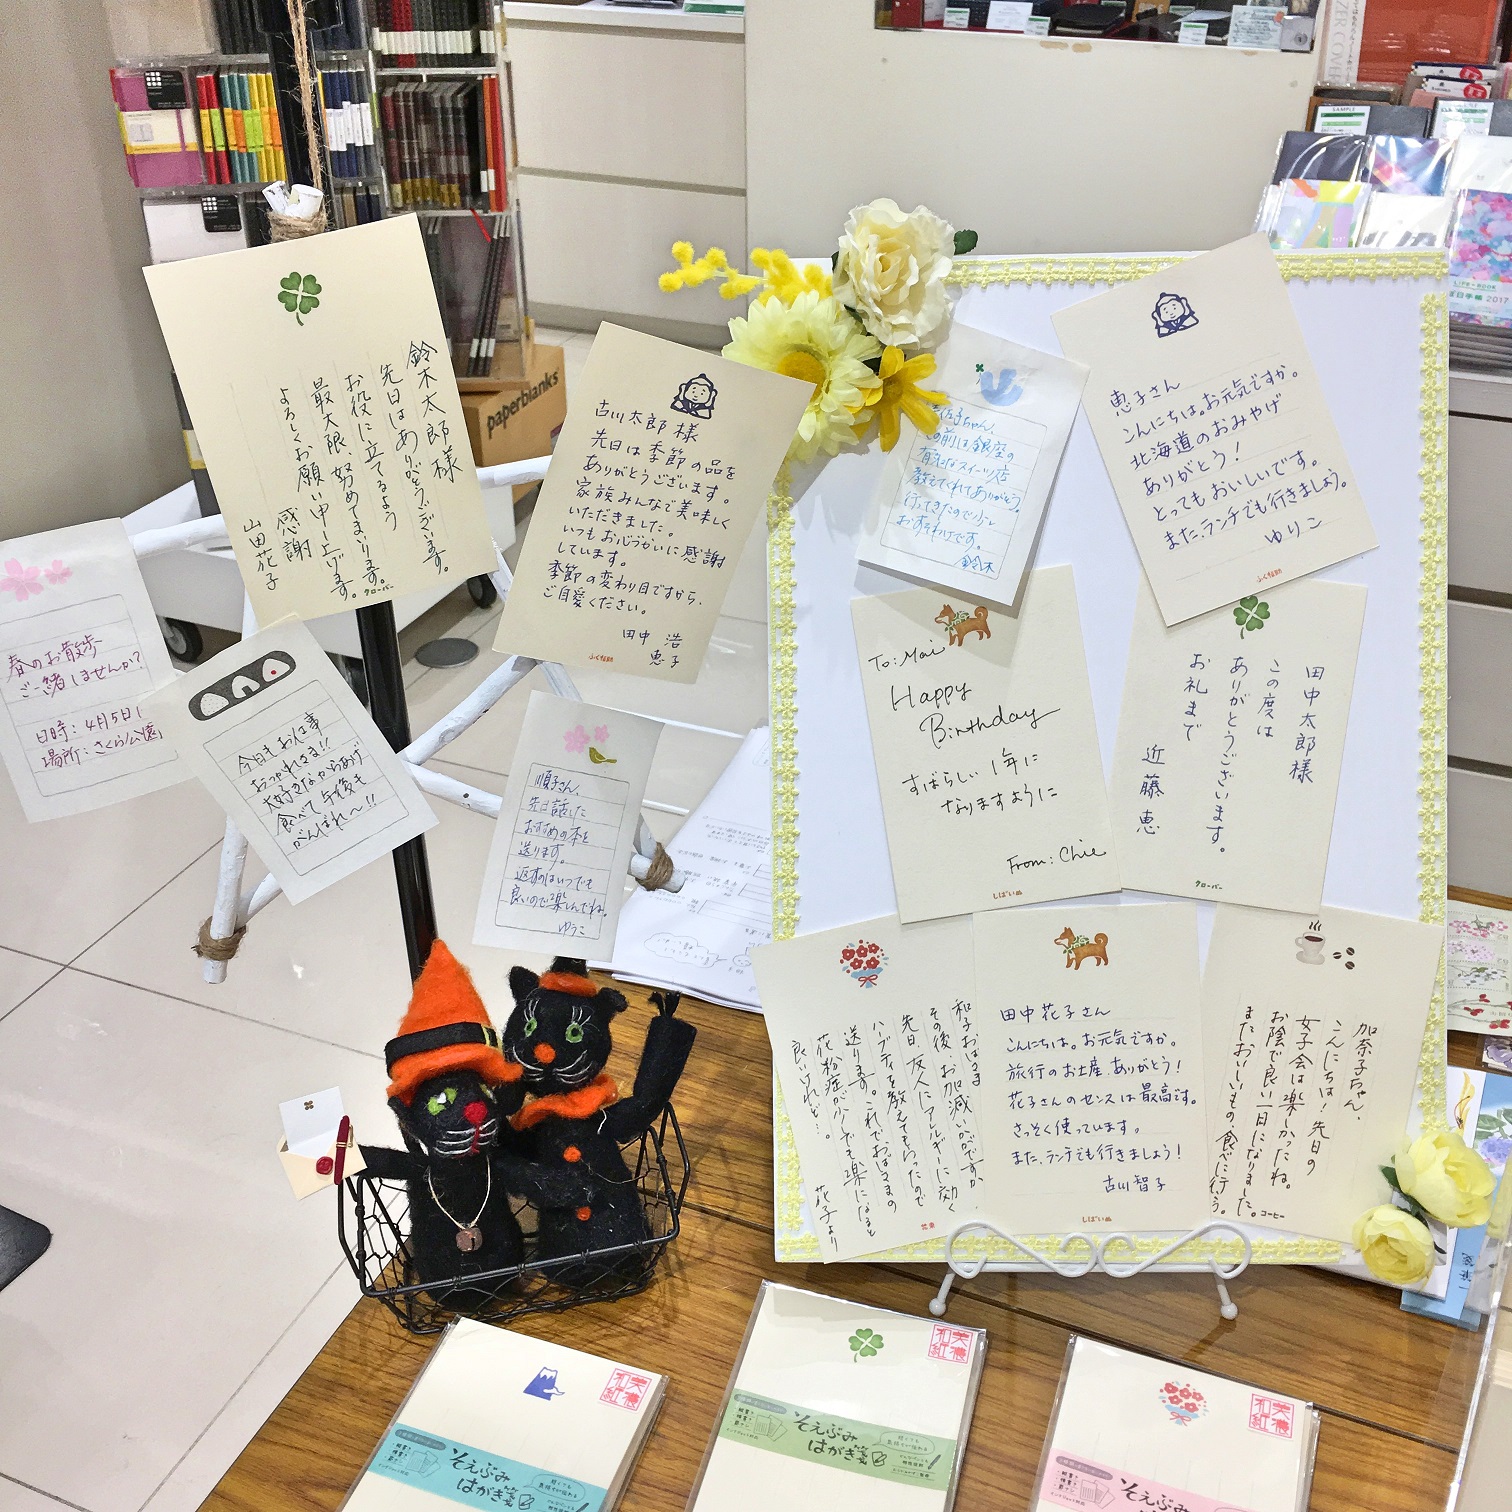 paperbanks
鈴木太郎様
先日はありがとうございます。
お役に立てるよう
最大限、努めてまいります。
よろしくお願い申し上げます。
感謝
山田花子
クローバー
古川太郎様
先日は季節の品を
ありがとうございます。
家族みんなで美味しく
いただきました。
いつもお心づかいに感謝
しています。
季節の変わり目ですから、
ご自愛ください。
田中 浩
恵子
ふく福助
春のお散歩
ご一緒しませんか?
日時:4月5日
場所:さくら公園
今日もお仕事
おつかれさま!!
大好きなからあげ
食べて午後も
がんばれ〜!!
順子さん、
先日話した
おすすめの本を
送ります。
返すのはいつでも
良いので楽しんでね。
ゆうこ
佐子ちゃん、
の前は銀座の
有名なスイーツ店
教えてくれてありがとう。
行ってきたので少し
おすそわけです。
鈴木
恵子さん
こんにちは。お元気ですか。
北海道のおみやげ
ありがとう!
とってもおいしいです。
また、ランチでも行きましょう。
ゆりこ
ふく福助
To:Mai
Happy
Birthday
すばらしい1年に
なりますように
From:Chie
しばいぬ
田中太郎様
この度は
ありがとうございます。
お礼まで
近藤恵
クローバー
和子おばさま
その後、お加減いかがですか。
先日、友人にアレルギーに効く
ハーブティを教えてもらったので
送ります。これでおばさまの
花粉症が少しでも楽になると
良いけれど…。
花子より
花束
田中花子さん
こんにちは。お元気ですか。
旅行のお土産、ありがとう!
花子さんのセンスは最高です。
さっそく使っています。
また、ランチでも行きましょう!
古川智子
しばいぬ
加奈子ちゃん、
こんにちは!先日の
女子会は楽しかったね。
お陰で良い一日になりました。
またおいしいもの、食べに行こう。
コーヒー
美濃和紙
そえぶみ
はがき箋
美濃和紙
そえぶみ
はがき箋
美濃和紙
そえぶみ
はがき箋
SAMPLE
2017